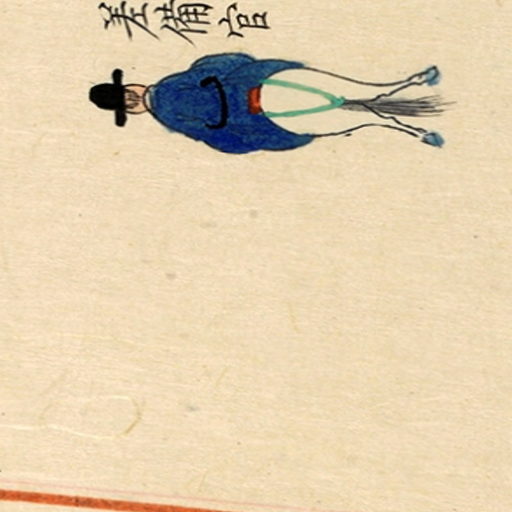 差備官